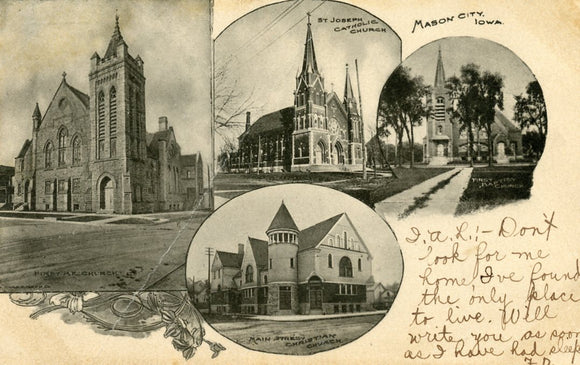 ST JOSEPH
CATHOLIC
CHURCH
MASON CITY.
IOWA.
FIRST M.E. CHURCH
FIRST CITY
CHURCH
MAIN STREET
CHRISTIAN
CHURCH.
Don't
look for me
home, I've found
the only place
to live. Will
write you as soon
as I have had sleep